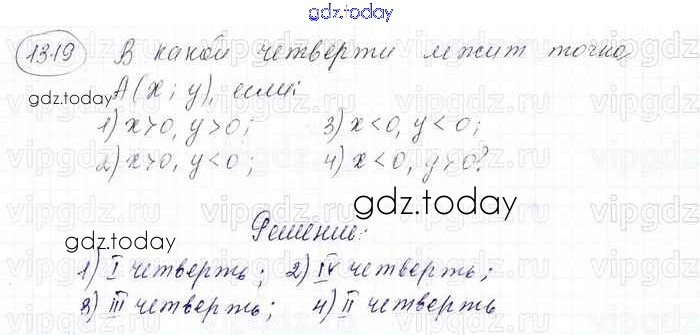 gdz.today
1319 В какой четверти лежит точка
A(x; y), если:
gdz.today
1) x>0, y>0; 3) x<0, y<0;
2) x>0, y<0; 4) x<0, y>0?
gdz.today
Решение:
gdz.today
1) I четверть; 2) IV четверть;
3) III четверть; 4) II четверть